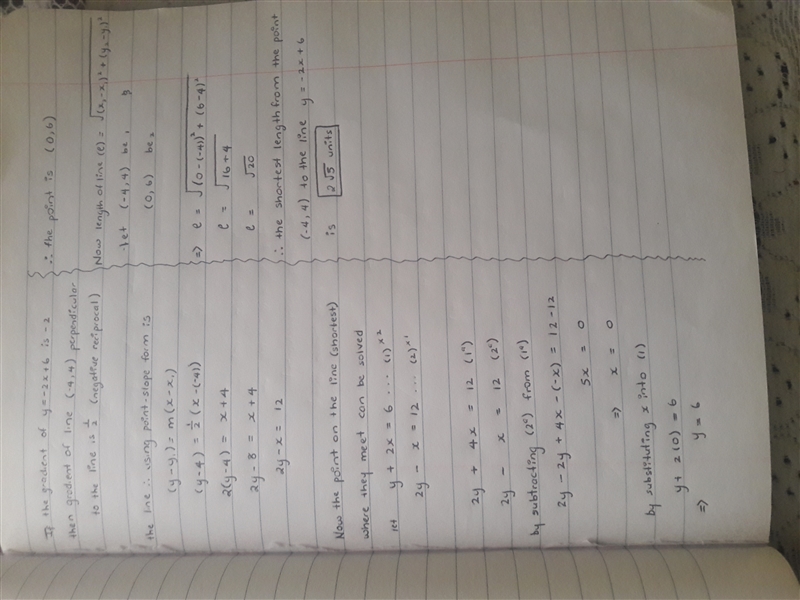 If the gradient of y=-2x+6 is -2
then gradient of line (-4,4) perpendicular
to the line is 1/2 (negative reciprocal)
the line ∴ using point-slope form is
(y-y₁) = m(x-x₁)
(y-4) = 1/2 (x-(-4))
2(y-4) = x+4
2y-8 = x+4
2y-x = 12
Now the point on the line (shortest)
where they meet can be solved
let y + 2x = 6 ... (1) ˣ²
2y - x = 12 ... (2) ˣ¹
2y + 4x = 12 (1°)
2y - x = 12 (2°)
by subtracting (2°) from (1°)
2y - 2y + 4x - (-x) = 12 - 12
5x = 0
⇒ x = 0
by substituting x into (1)
y + 2(0) = 6
⇒ y = 6
∴ the point is (0,6)
Now length of line (ℓ) = √(x₂-x₁)² + (y₂-y₁)²
let (-4,4) be ₁ &
(0,6) be ₂
⇒ ℓ = √(0-(-4))² + (6-4)²
ℓ = √16+4
ℓ = √20
∴ the shortest length from the point
(-4,4) to the line y = -2x+6
is 2√5 units